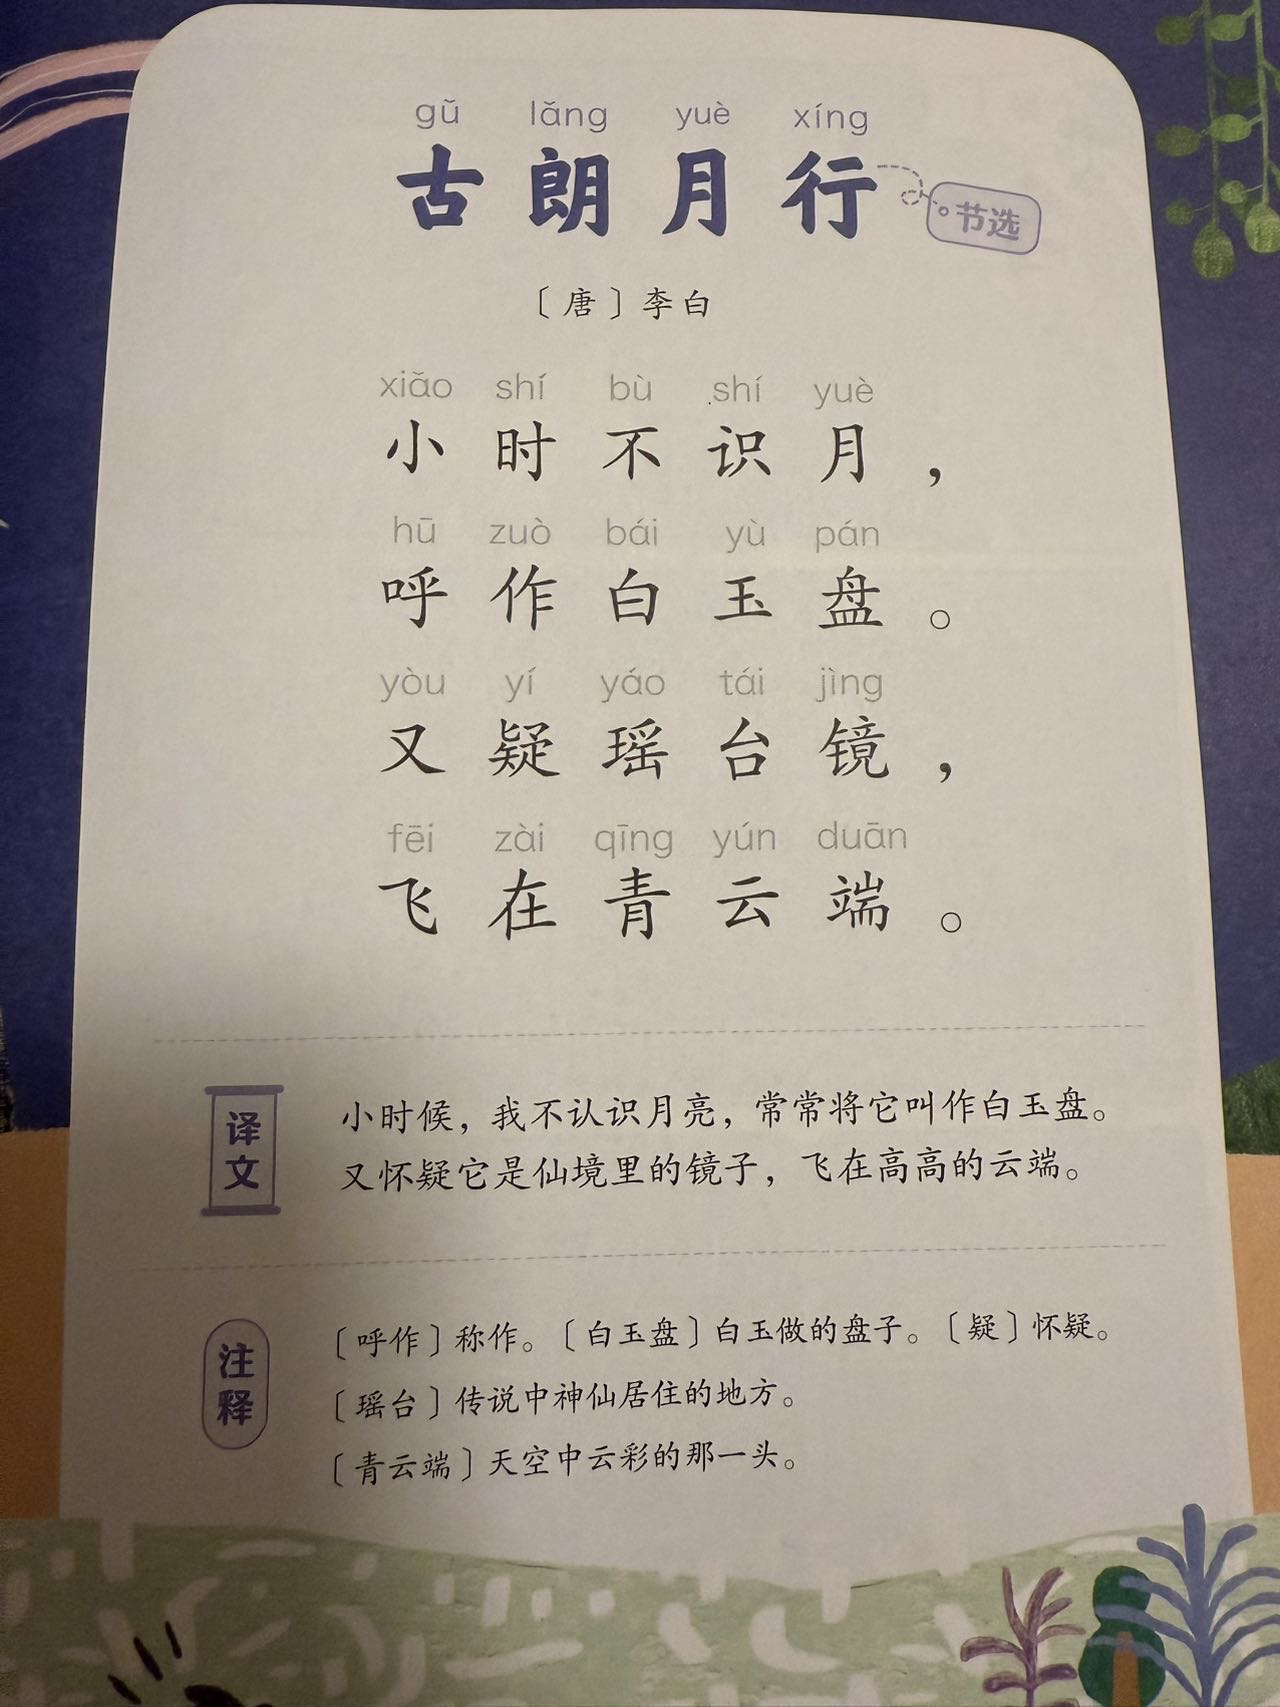 gǔ lǎng yuè xíng
古朗月行 节选
〔唐〕李白
xiǎo shí bù shí yuè
小时不识月，
hū zuò bái yù pán
呼作白玉盘。
yòu yí yáo tái jìng
又疑瑶台镜，
fēi zài qīng yún duān
飞在青云端。
译文
小时候，我不认识月亮，常常将它叫作白玉盘。
又怀疑它是仙境里的镜子，飞在高高的云端。
注释
〔呼作〕称作。〔白玉盘〕白玉做的盘子。〔疑〕怀疑。
〔瑶台〕传说中神仙居住的地方。
〔青云端〕天空中云彩的那一头。